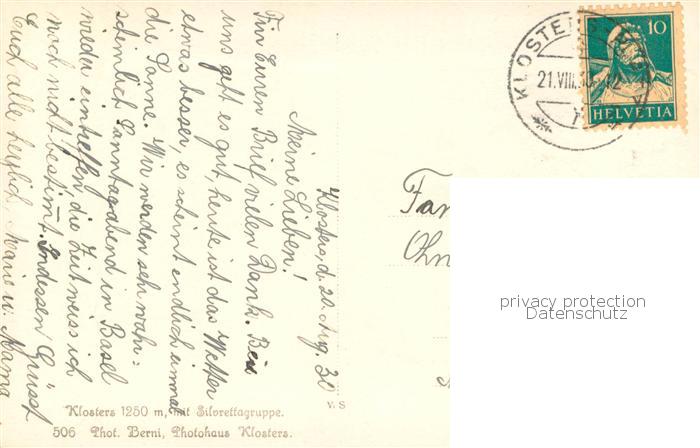 Klosters, d. 20. Aug. 30
Meine Lieben!
Für Euren Brief vielen Dank. Bei
uns geht es gut, heute ist das Wetter
etwas besser, es scheint endlich einmal
die Sonne. Wir werden sehr wahr=
scheinlich Sonntagabend in Basel
wieder eintreffen, die Zeit weiss ich
noch nicht bestimmt. Indessen Grüsst
Euch alle herzlich, Marie u. Mama
Klosters 1250 m, mit Silvrettagruppe.
506 Phot. Berni, Photohaus Klosters.
V. S
KLOSTERS
21.VIII.30
10
HELVETIA
Fam
Ohn
privacy protection
Datenschutz